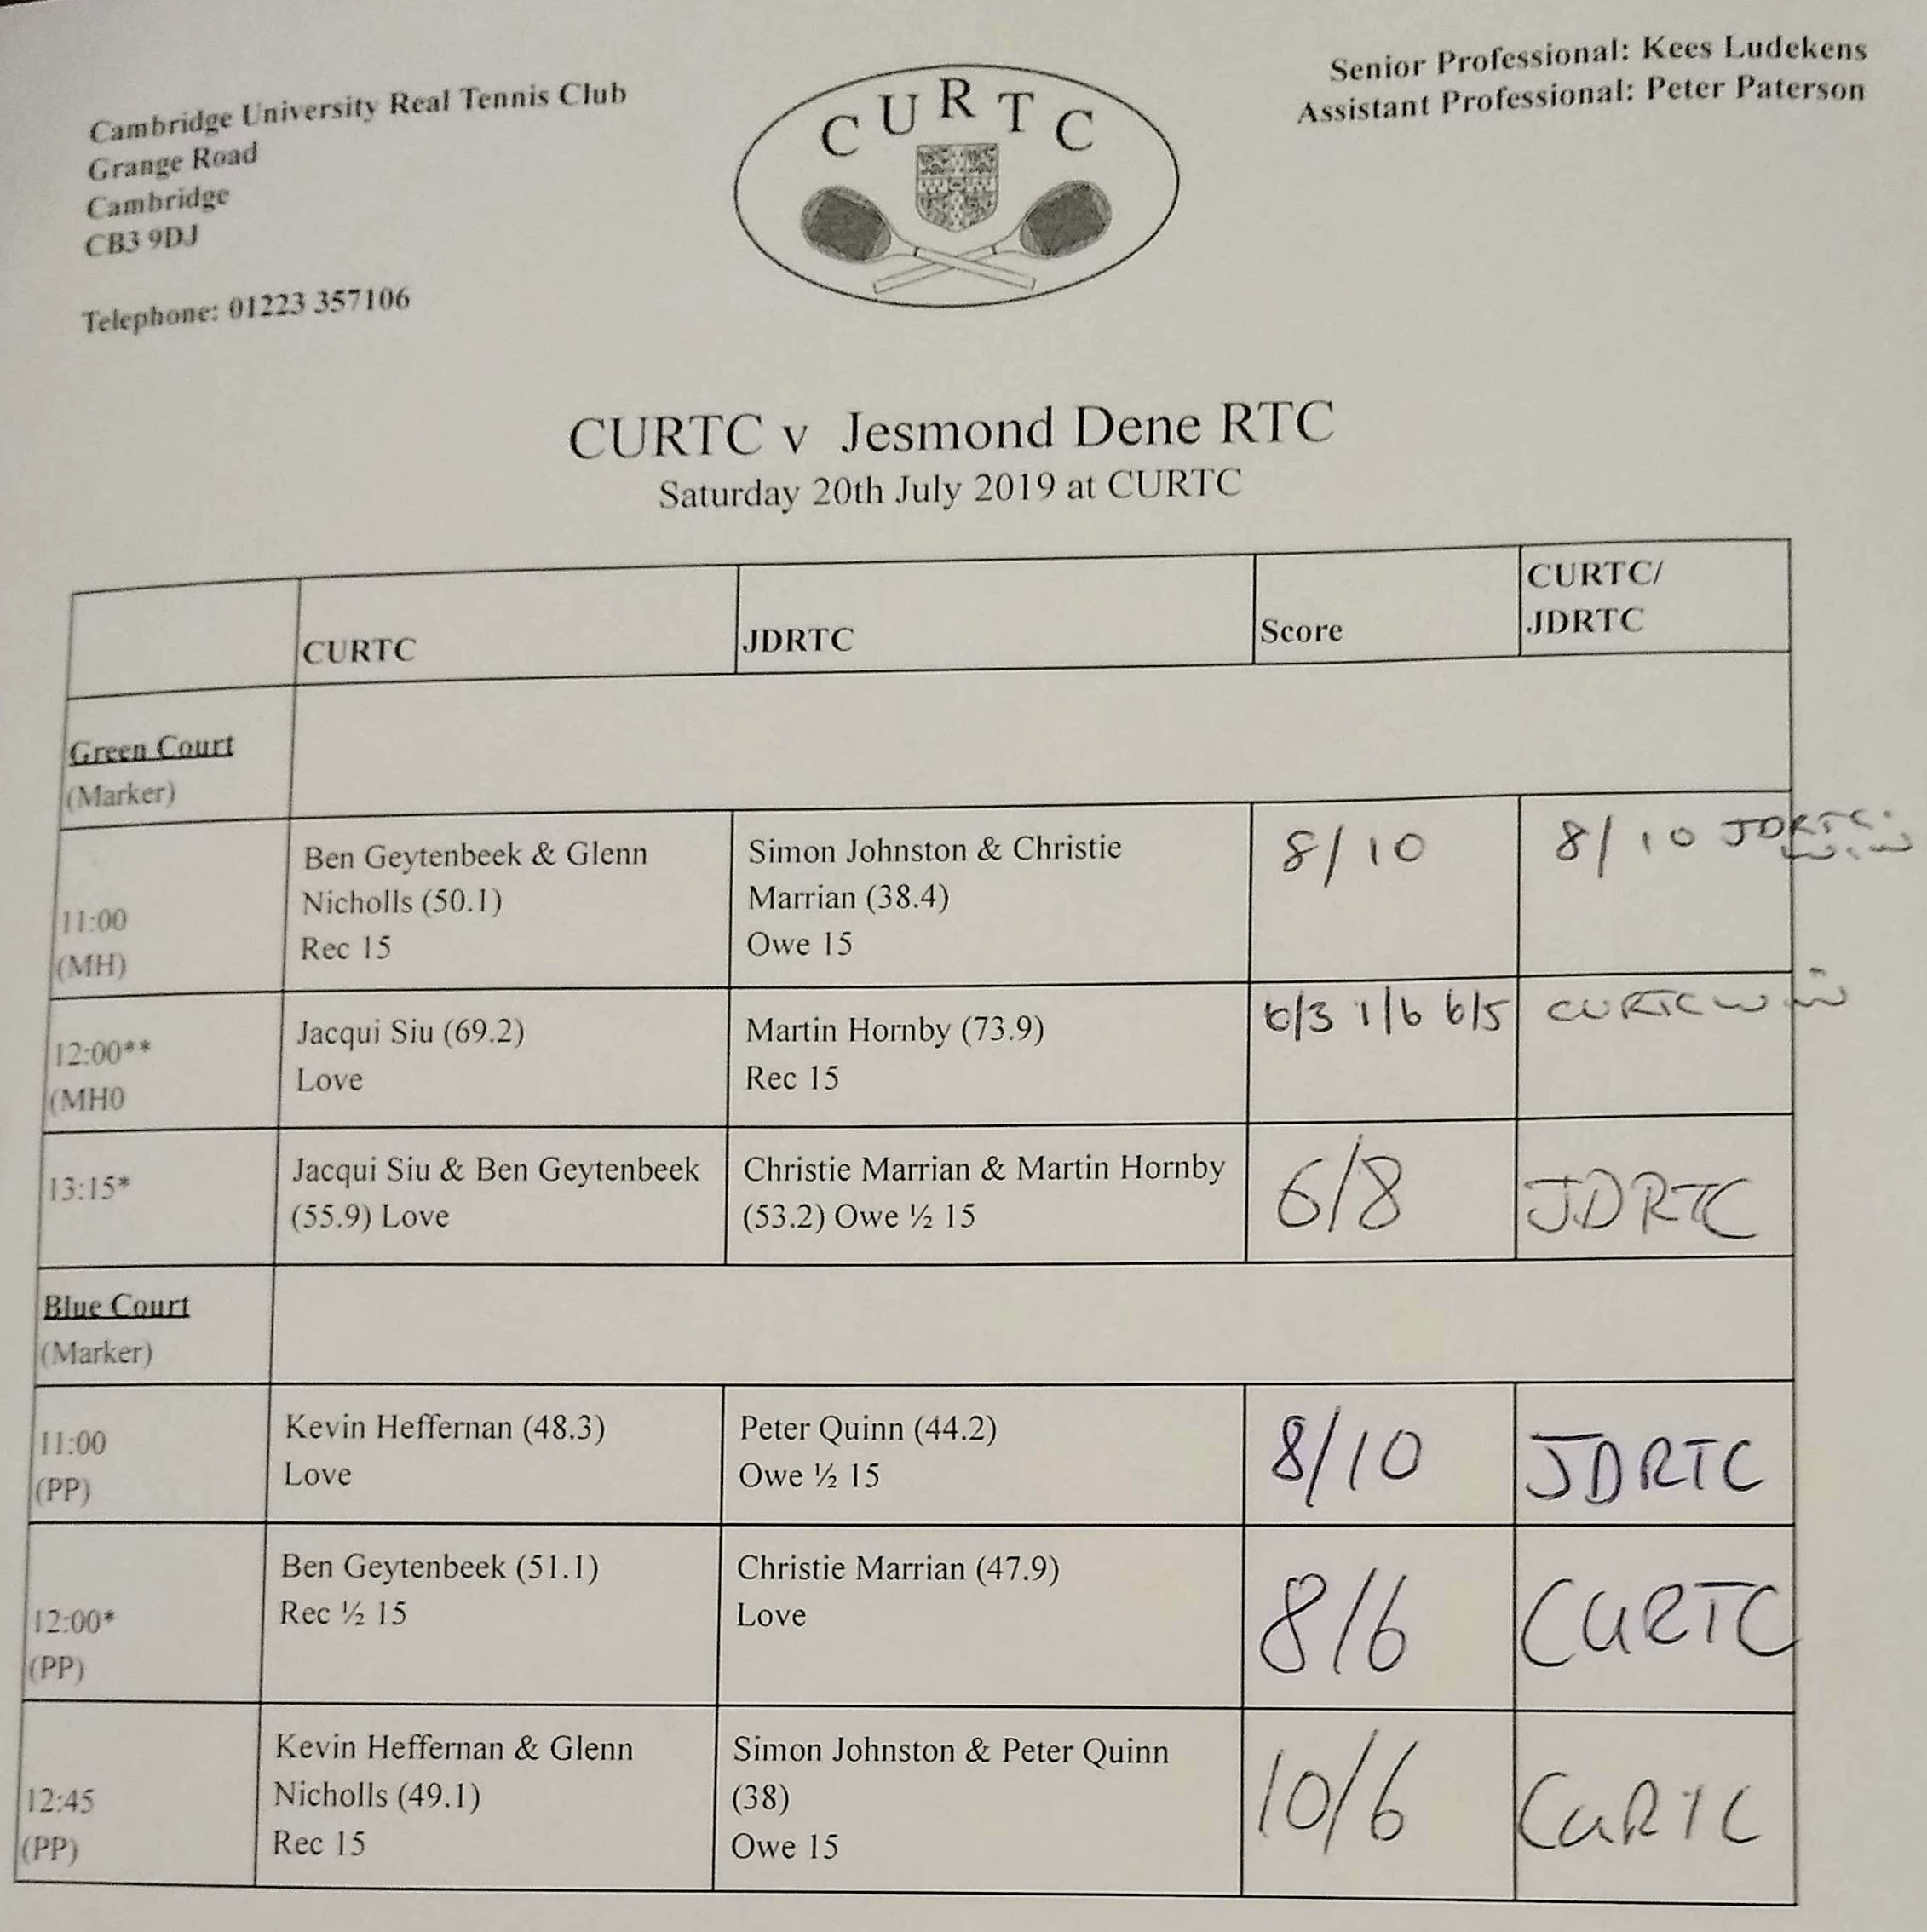 Cambridge University Real Tennis Club
Grange Road
Cambridge
CB3 9DJ
Telephone: 01223 357106
CURTC
Senior Professional: Kees Ludekens
Assistant Professional: Peter Paterson
CURTC v Jesmond Dene RTC
Saturday 20th July 2019 at CURTC
CURTC
JDRTC
Score
CURTC/
JDRTC
Green Court
(Marker)
11:00
(MH)
Ben Geytenbeek & Glenn
Nicholls (50.1)
Rec 15
Simon Johnston & Christie
Marrian (38.4)
Owe 15
8/10
8/10 JDRTC
win
12:00**
(MH0
Jacqui Siu (69.2)
Love
Martin Hornby (73.9)
Rec 15
6/3 1/6 6/5
CURTC win
13:15*
Jacqui Siu & Ben Geytenbeek
(55.9) Love
Christie Marrian & Martin Hornby
(53.2) Owe ½ 15
6/8
JDRTC
Blue Court
(Marker)
11:00
(PP)
Kevin Heffernan (48.3)
Love
Peter Quinn (44.2)
Owe ½ 15
8/10
JDRTC
12:00*
(PP)
Ben Geytenbeek (51.1)
Rec ½ 15
Christie Marrian (47.9)
Love
8/6
CURTC
12:45
(PP)
Kevin Heffernan & Glenn
Nicholls (49.1)
Rec 15
Simon Johnston & Peter Quinn
(38)
Owe 15
10/6
CURTC